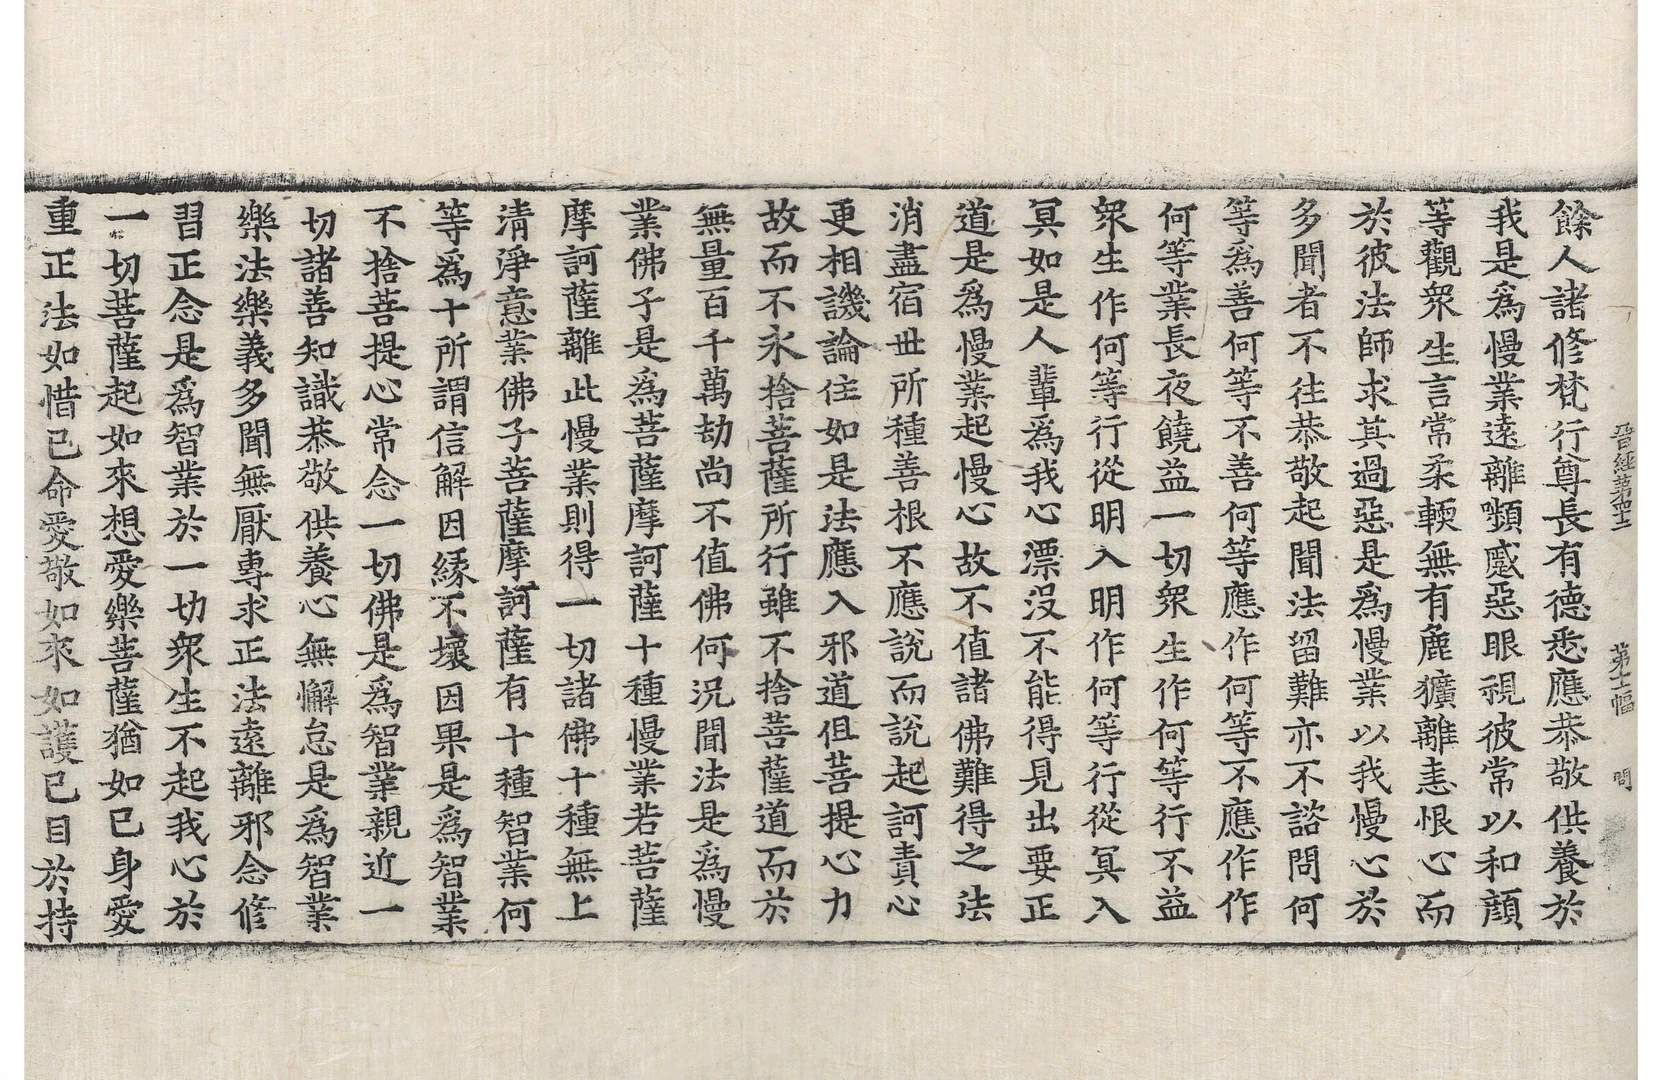 晉經第四十二　第十二幅　問
餘人諸修梵行尊長有德悉應恭敬供養於
我是爲慢業遠離嚬慼惡眼視彼常以和顔
等觀衆生言常柔輭無有麁獷離恚恨心而
於彼法師求其過惡是爲慢業以我慢心於
多聞者不往恭敬起聞法留難亦不諮問何
等爲善何等不善何等應作何等不應作作
何等業長夜饒益一切衆生作何等行不益
衆生作何等行從明入明作何等行從冥入
冥如是人輩爲我心漂沒不能得見出要正
道是爲慢業起慢心故不值諸佛難得之法
消盡宿世所種善根不應說而說起訶責心
更相譏論住如是法應入邪道但菩提心力
故而不永捨菩薩所行雖不捨菩薩道而於
無量百千萬劫尚不值佛何況聞法是爲慢
業佛子是爲菩薩摩訶薩十種慢業若菩薩
摩訶薩離此慢業則得一切諸佛十種無上
清淨意業佛子菩薩摩訶薩有十種智業何
等爲十所謂信解因緣不壞因果是爲智業
不捨菩提心常念一切佛是爲智業親近一
切諸善知識恭敬供養心無懈怠是爲智業
樂法樂義多聞無厭專求正法遠離邪念修
習正念是爲智業於一切衆生不起我心於
一切菩薩起如來想愛樂菩薩猶如已身愛
重正法如惜已命愛敬如來如護已目於持